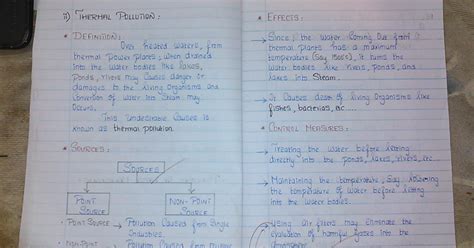 ii) THERMAL POLLUTION :
* DEFINITION :
Over heated waters, from
thermal power plants, when drained
into the water bodies like lakes,
Ponds, rivers may causes danger or
damages to the living organisms and
Conversion of water into Steam may
Occurs.
This undesirable causes is
known as thermal pollution.
* SOURCES :
SOURCES
POINT
SOURCE
NON-POINT
SOURCE
POINT
SOURCE → Pollution Caused from Single
Industries.
NON-POINT → Pollution Caused from
* EFFECTS :
→ Since, the water coming out from
thermal plants has a maximum
temperature, it turns the
water bodies like rivers, Ponds, and
lakes into Steam.
→ It Causes death of living organisms like
fishes, bacterias, etc...
* CONTROL MEASURES :
→ Treating the water before letting
directly into the ponds, lakes, rivers, etc..
→ Maintaining the temperature, Say lowering
the temperature of water before letting
into the water bodies.
→ Using air filters may Eliminate the
evaluation of harmful gases into the
atmosphere